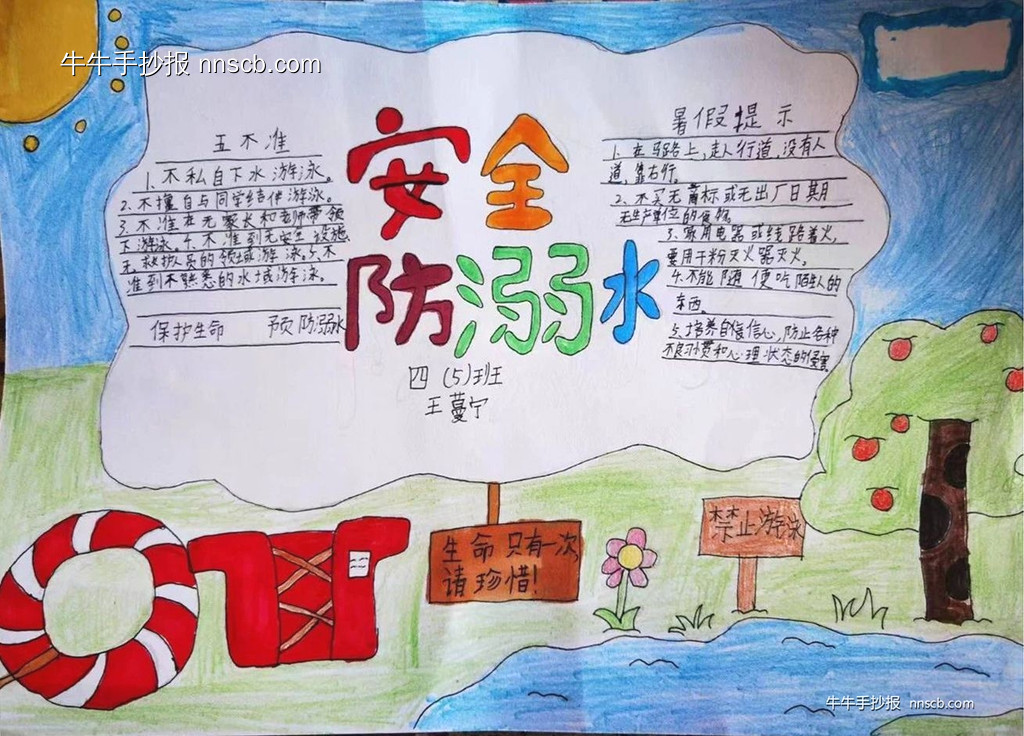 牛牛手抄报 nnscb.com
五不准
1、不私自下水游泳。
2、不擅自与同学结伴游泳。
3、不准在无家长和老师带领
下游泳。4、不准到无安全设施
无救护人员的领域游泳。5、不
准到不熟悉的水域游泳。
保护生命 预防溺水
安全
防溺水
四(5)班
王蔓宁
暑假提示
1、在马路上,走人行道,没有人
道,靠右行。
2、不买无商标或无出厂日期
无生产单位的食物。
3、家用电器或线路着火,
要用干粉灭火器灭火。
4、不能随便吃陌生人的
东西。
5、培养自信信心,防止各种
不良习惯和心理状态的侵害
生命只有一次,
请珍惜!
禁止游泳
牛牛手抄报 nnscb.com